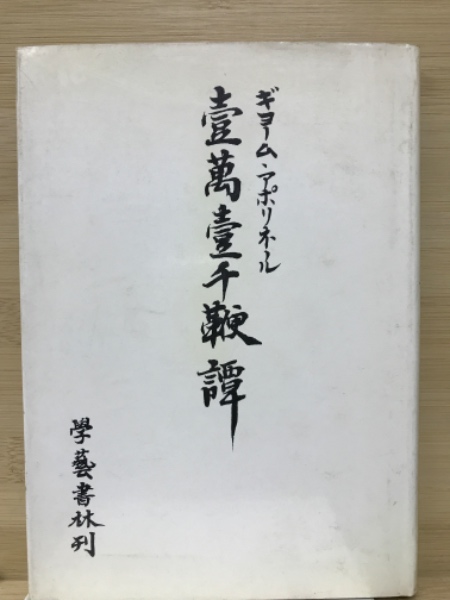 ギヨーム・アポリネール
壹萬壹千鞭譚
學藝書林刊